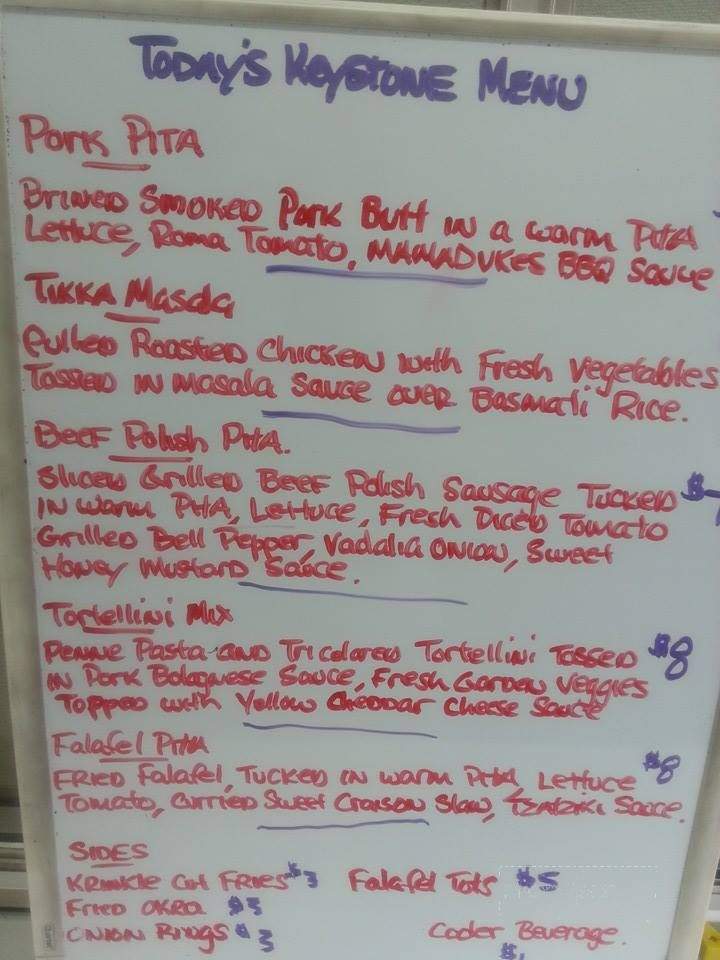 TODAY'S KEYSTONE MENU
PORK PITA
BRINED SMOKED PORK BUTT IN A WARM PITA
LETTUCE, ROMA TOMATO, MAMADUKES BBQ SAUCE
TIKKA MASALA
PULLED ROASTED CHICKEN WITH FRESH VEGETABLES
TOSSED IN MASALA SAUCE OVER BASMATI RICE.
BEEF POLISH PITA.
SLICED GRILLED BEEF POLISH SAUSAGE TUCKED $
IN WARM PITA, LETTUCE, FRESH DICED TOMATO
GRILLED BELL PEPPER, VADALIA ONION, SWEET
HONEY MUSTARD SAUCE.
TORTELLINI MIX
PENNE PASTA AND TRICOLORED TORTELLINI TOSSED $8
IN PORK BOLOGNESE SAUCE, FRESH GARDEN VEGGIES
TOPPED WITH YELLOW CHEDDAR CHEESE SAUCE
FALAFEL PITA
FRIED FALAFEL, TUCKED IN WARM PITA, LETTUCE $8
TOMATO, CURRIED SWEET CRAISON SLAW, TZATZIKI SAUCE.
SIDES
KRINKLE CUT FRIES $3 FALAFEL TOTS $5
FRIED OKRA $3
ONION RINGS $3 COOLER BEVERAGE.
$1